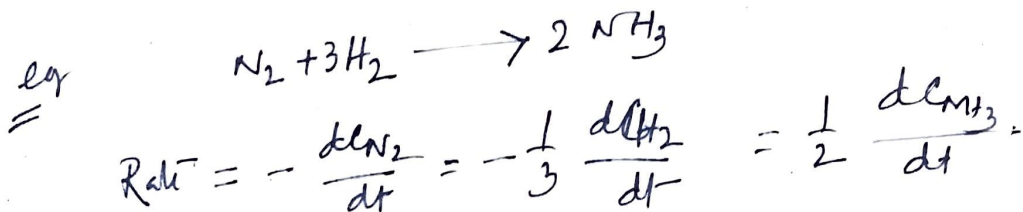 eg N₂ + 3H₂ ⟶ 2 NH₃
Rate = - dC_N₂/dt = - 1/3 dC_H₂/dt = 1/2 dC_NH₃/dt.